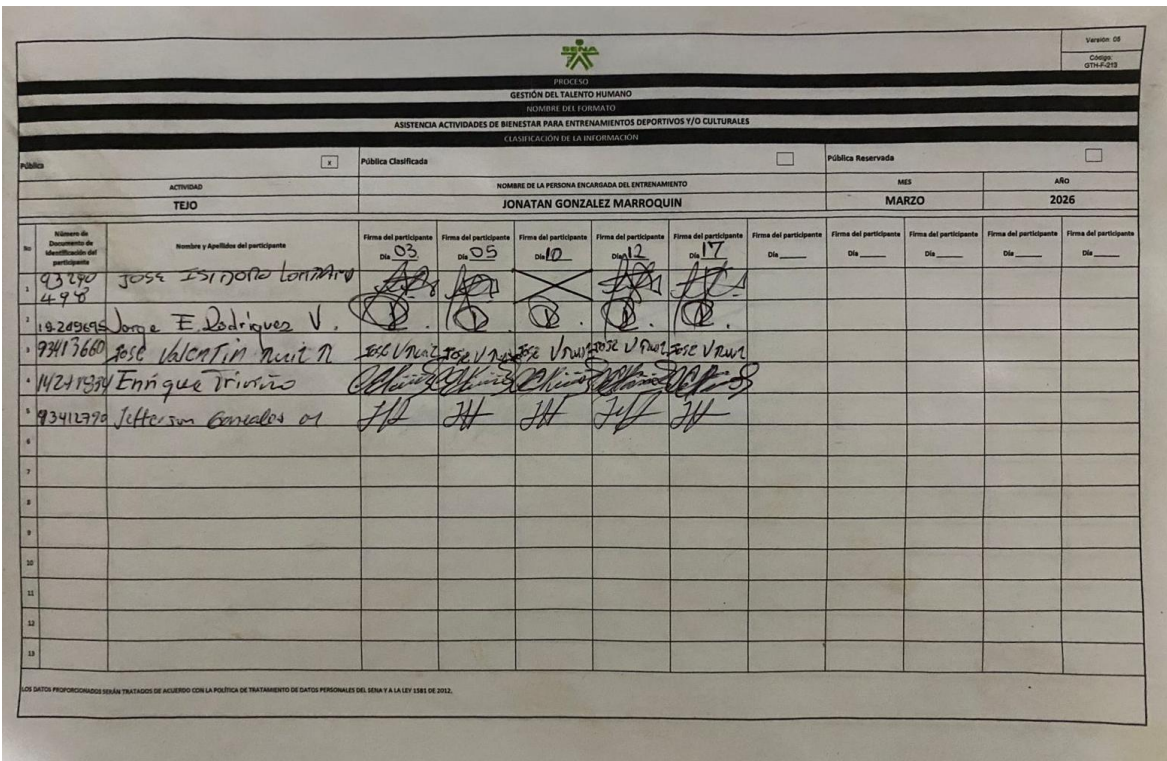 SENA
Versión: 05
Código:
GTH-F-213
PROCESO
GESTIÓN DEL TALENTO HUMANO
NOMBRE DEL FORMATO
ASISTENCIA ACTIVIDADES DE BIENESTAR PARA ENTRENAMIENTOS DEPORTIVOS Y/O CULTURALES
CLASIFICACIÓN DE LA INFORMACIÓN
Pública x Pública Clasificada Pública Reservada
ACTIVIDAD NOMBRE DE LA PERSONA ENCARGADA DEL ENTRENAMIENTO MES AÑO
TEJO JONATAN GONZALEZ MARROQUIN MARZO 2026
No Número de Documento de Identificación del participante Nombre y Apellidos del participante Firma del participante Firma del participante Firma del participante Firma del participante Firma del participante Firma del participante Firma del participante Firma del participante Firma del participante Firma del participante
Día 03 Día 05 Día 10 Día 12 Día 17 Día ____ Día ____ Día ____ Día ____ Día ____
1 93290 498 JOSE ISIDORO
2 Jorge E. Rodriguez V.
3 93413660 Jose Valentin Ruiz R Jose V Ruiz Jose V Ruiz Jose V Ruiz Jose V Ruiz Jose V Ruiz
4 Enrique Triviño
5 93412790 Jefferson Gonzales
6
7
8
9
10
11
12
13
LOS DATOS PROPORCIONADOS SERÁN TRATADOS DE ACUERDO CON LA POLÍTICA DE TRATAMIENTO DE DATOS PERSONALES DEL SENA Y A LA LEY 1581 DE 2012.